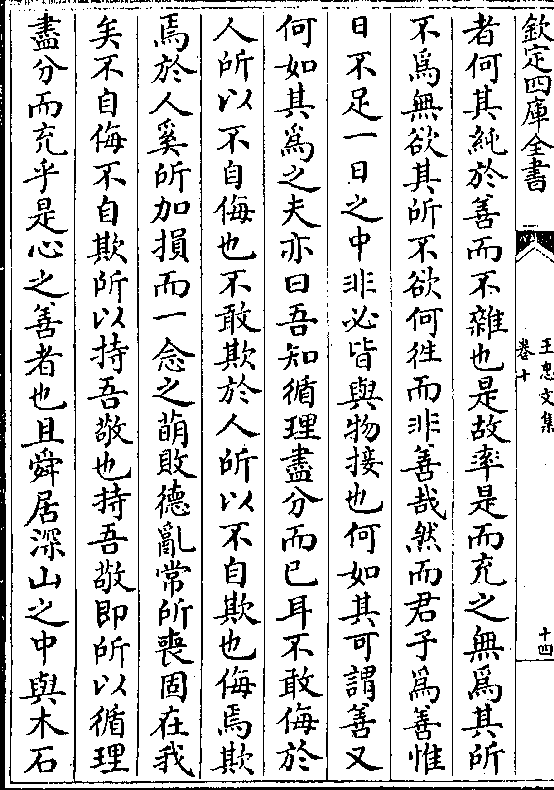 欽定四庫全書
王忠文集
卷十
十四
者何其純於善而不雜也是故率是而充之無爲其所
不爲無欲其所不欲何徃而非善哉然而君子爲善惟
日不足一日之中非必皆與物接也何如其可謂善又
何如其爲之夫亦曰吾知循理盡分而已耳不敢侮於
人所以不自侮也不敢欺於人所以不自欺也侮焉欺
焉於人奚所加損而一念之萌敗德亂常所喪固在我
矣不自侮不自欺所以持吾敬也持吾敬即所以循理
盡分而充乎是心之善者也且舜居深山之中與木石